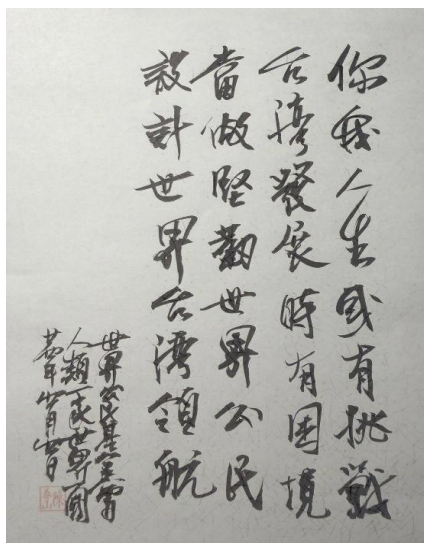 你我人生或有挑戰
台灣發展時有困境
當做堅勤世界公民
設計世界台灣領航
世界公民
人類一家世界一
年 月 日